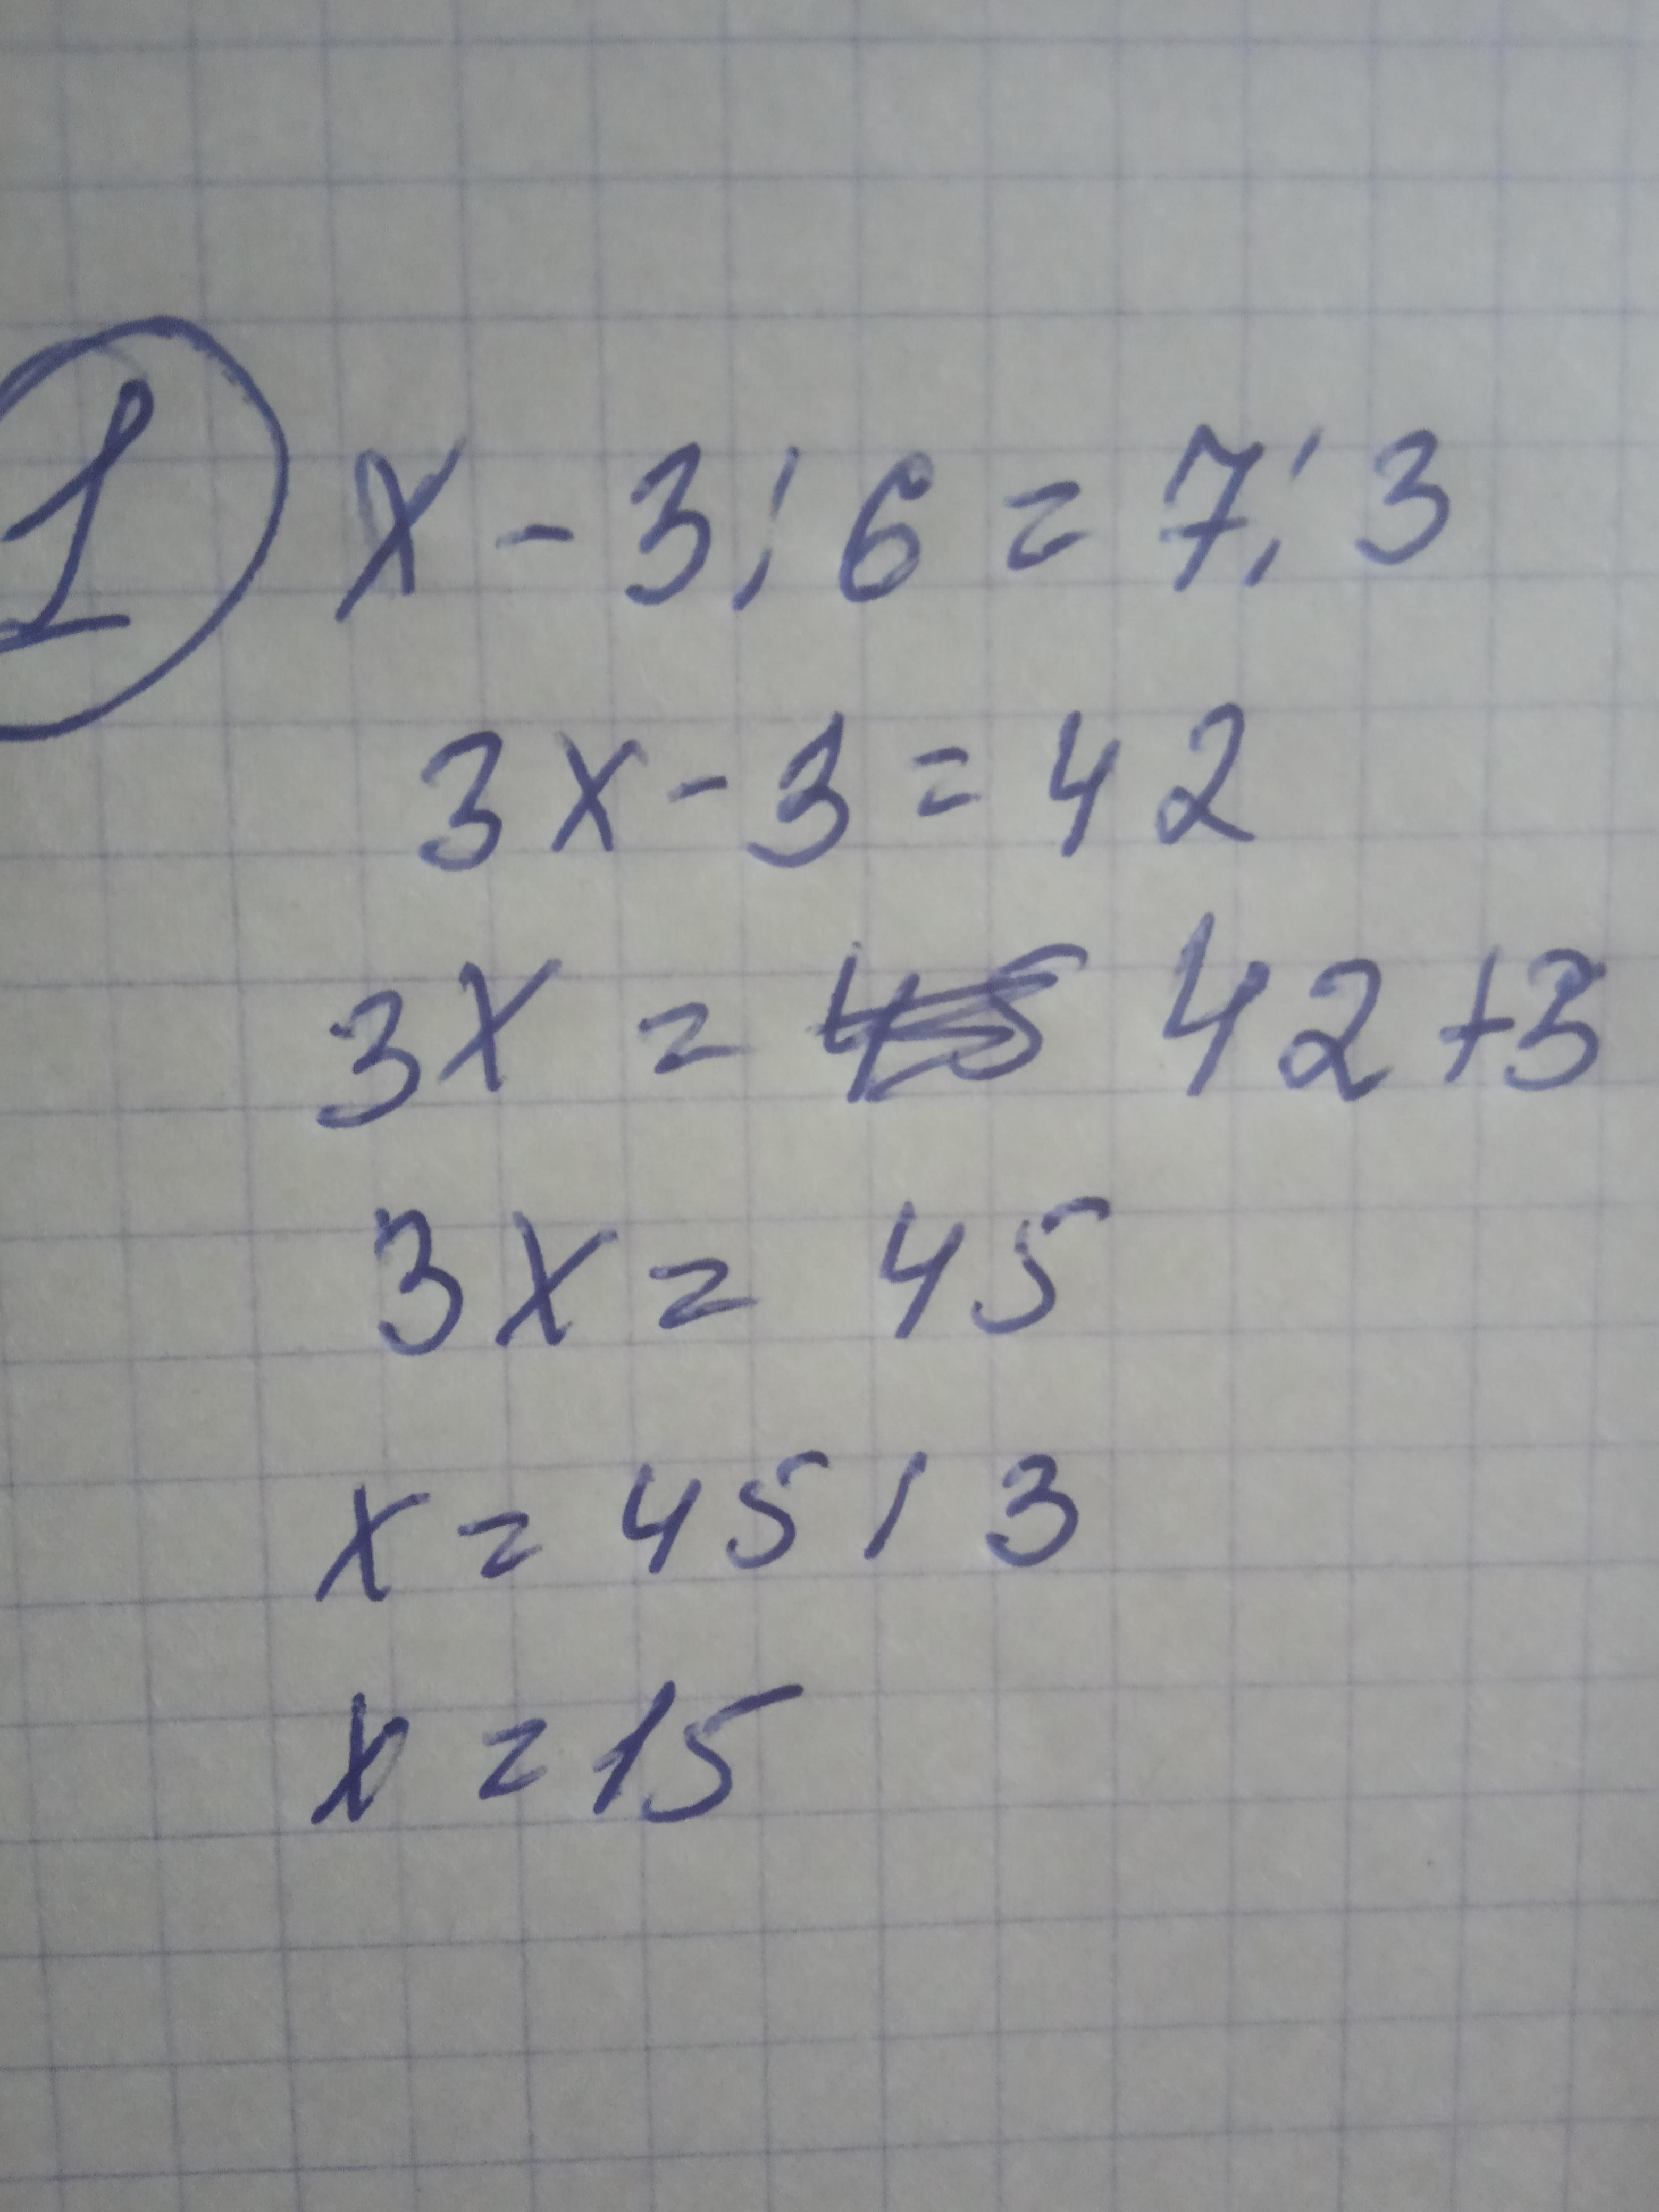 1 x - 3 : 6 = 7 : 3
3x - 3 = 42
3x = 45 42 + 3
3x = 45
x = 45 : 3
x = 15